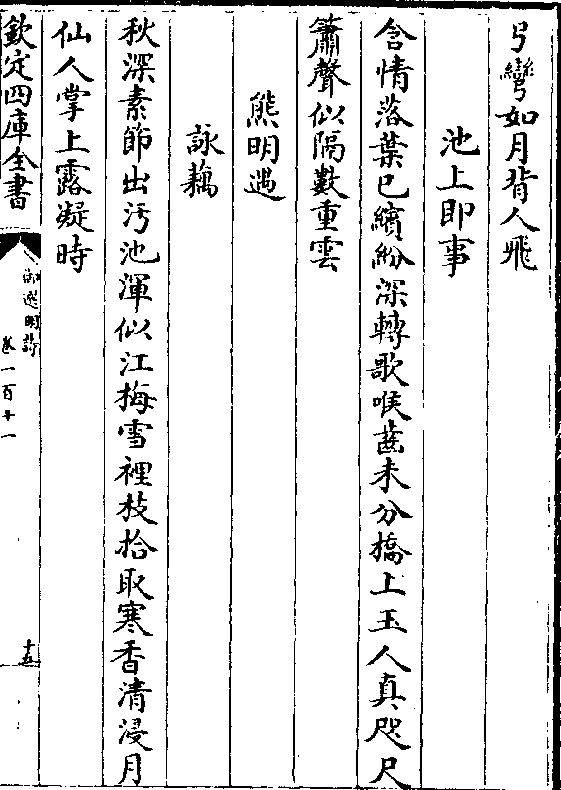 弓彎如月背人飛
池上即事
含情落葉已繽紛深轉歌喉齒未分橋上玉人真咫尺
簫聲似隔數重雲
熊明遇
詠藕
秋深素節出汚池渾似江梅雪裡枝拾取寒香清浸月
仙人掌上露凝時
欽定四庫全書
御選明詩
卷一百十一
十五